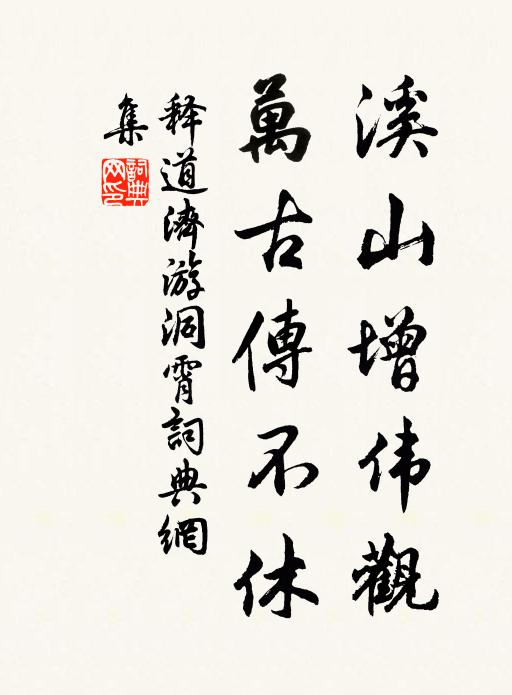 溪山增伟觀
萬古傳不休
释道濟游洞霄詞典網
集
詞典網印